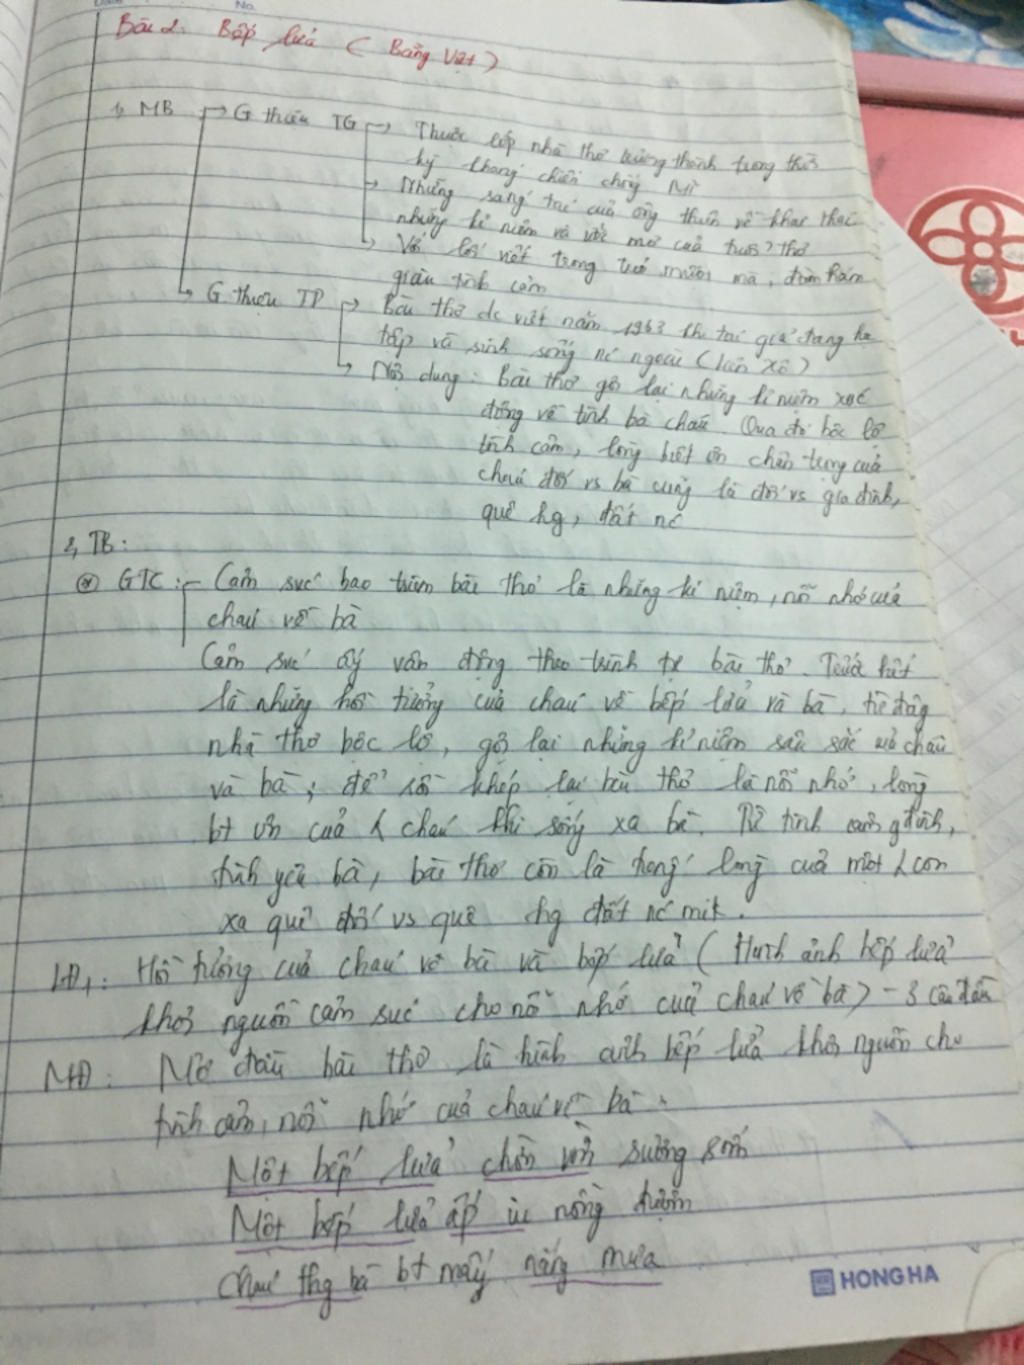 No.
Bài 2: Bếp lửa ( Bằng Việt )
1, MB → G thiệu TG → Thuộc lớp nhà thơ trưởng thành trong thời
kỳ kháng chiến chống Mĩ
→ Những sáng tác của ông thiên về khai thác
những kỉ niệm và ước mơ của tuổi trẻ
→ Với lối viết trong trẻo mượt mà, đằm thắm
giàu tình cảm
→ G thiệu TP → Bài thơ đc viết năm 1963 khi tác giả đang học
tập và sinh sống nc ngoài ( Liên Xô )
→ Nội dung : Bài thơ gợi lại những kỉ niệm xúc
động về tình bà cháu. Qua đó bộc lộ
tình cảm, lòng biết ơn chân trọng của
cháu đối vs bà cũng là đối vs gia đình,
quê hg, đất nc
2, TB :
⊛ GTC : - Cảm xúc bao trùm bài thơ là những kỉ niệm, nỗi nhớ của
cháu về bà
Cảm xúc ấy vận động theo trình tự bài thơ. Trước hết
là những hồi tưởng của cháu về bếp lửa và bà, từ đây
nhà thơ bộc lộ, gợi lại những kỉ niệm sâu sắc của cháu
và bà ; để rồi khép lại bài thơ là nỗi nhớ, lòng
bt ơn của cháu khi sống xa bà. Từ tình cảm g đình,
tình yêu bà, bài thơ còn là tiếng lòng của một con
xa quê đối vs quê hg đất nc mik.
LĐ1: Hồi tưởng của cháu về bà và bếp lửa ( Hình ảnh bếp lửa
khơi nguồn cảm xúc cho nỗi nhớ của cháu về bà) - 3 câu đầu
MĐ : Mở đầu bài thơ là hình ảnh bếp lửa khơi nguồn cho
tình cảm, nỗi nhớ của cháu về bà.
Một bếp lửa chờn vờn sương sớm
Một bếp lửa ấp iu nồng đượm
Cháu thg bà bt mấy nắng mưa
HONG HA